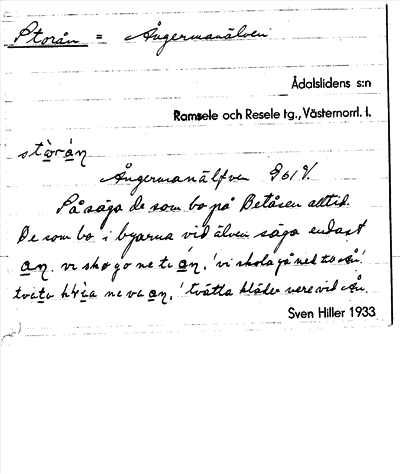 Storån = Ångermanälven
Ådalslidens s:n
Ramsele och Resele tg., Västernorrl. l.
stòrán
Ångermanälfven 961 V.
Så säga de som bo på Betåsen alltid.
De som bo i byarna vid älven säga endast
an. vi sko go ne ti án, 'vi skola gå ned till ån'.
tväta klèa ne va an, 'tvätta kläder nere vid ån.
Sven Hiller 1933